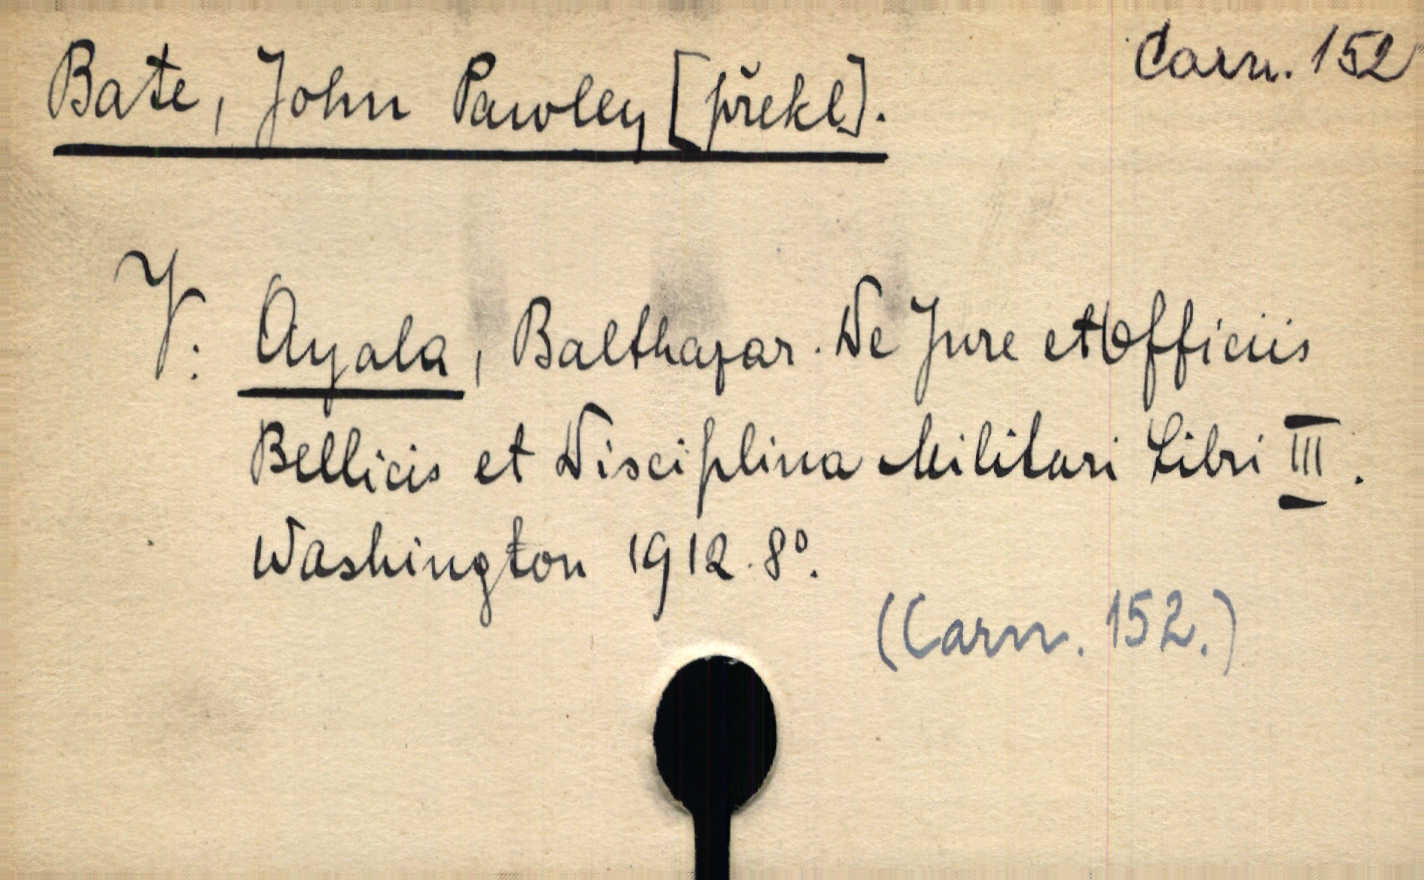 Carn. 152
Bate, John Pawley [překl].
V: Ayala, Balthazar. De Jure et Officiis
Bellicis et Disciplina Militari Libri III.
Washington 1912. 8°.
(Carn. 152.)